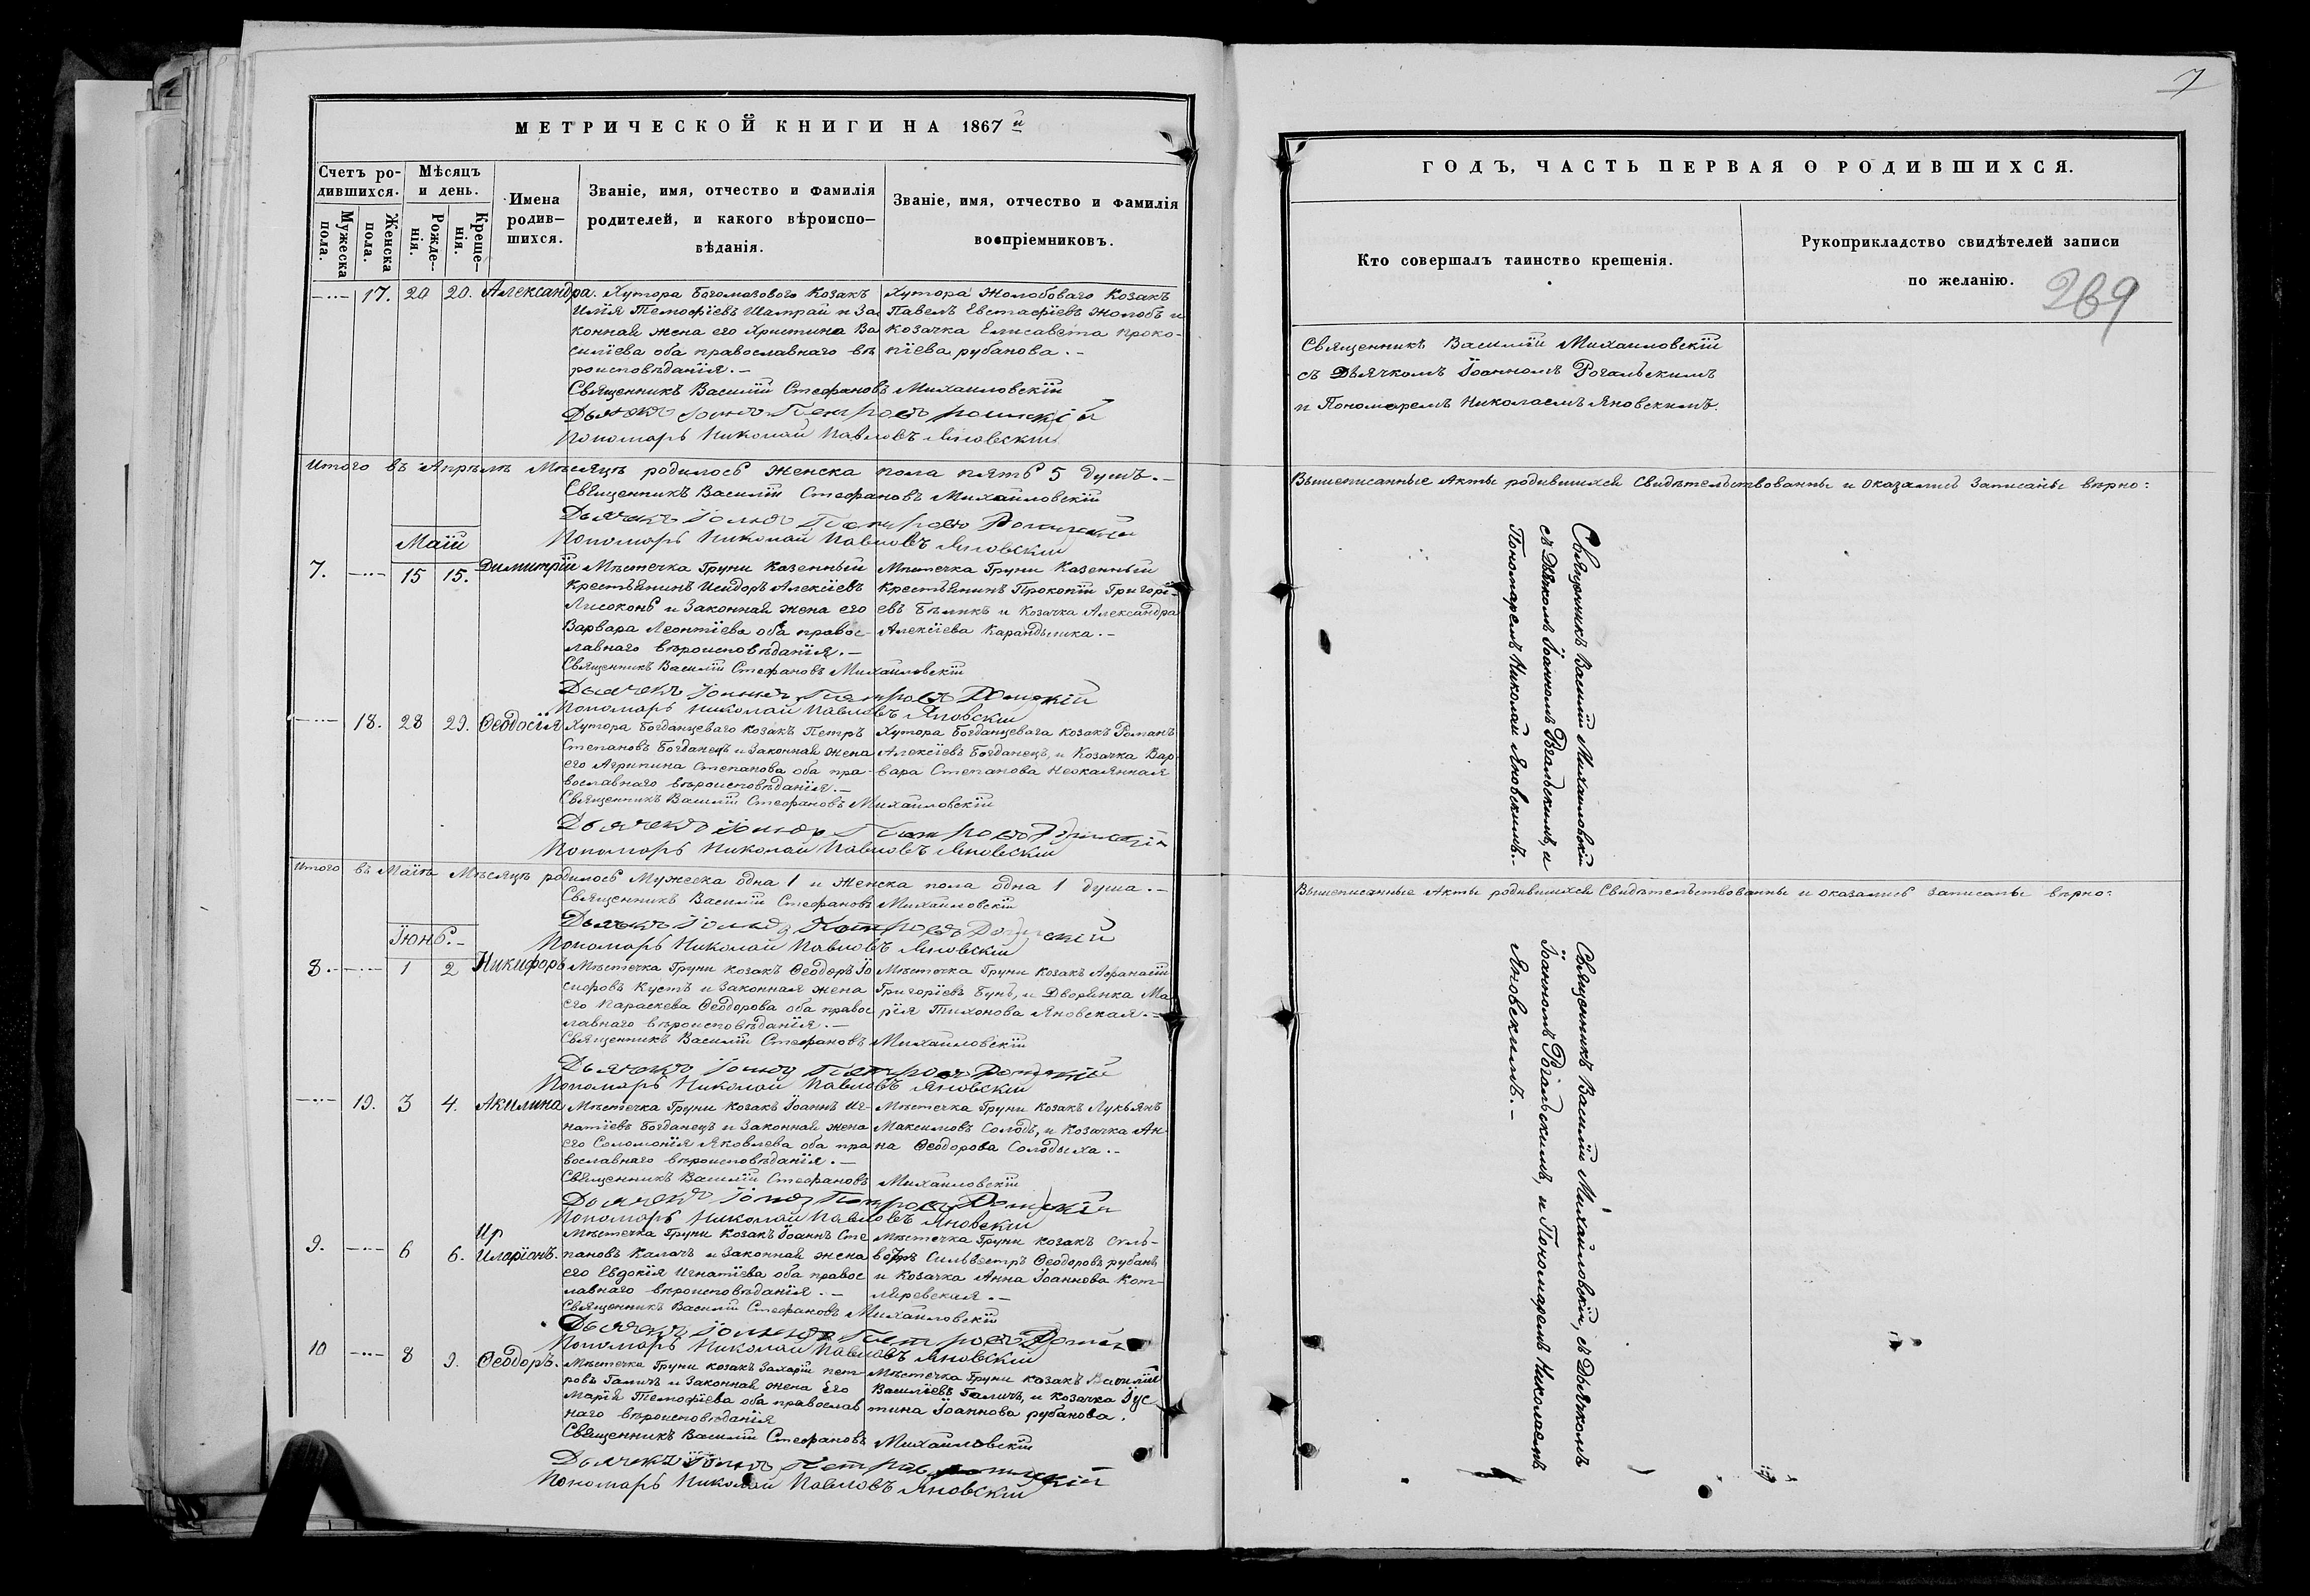 МЕТРИЧЕСКОЙ КНИГИ НА 1867й
Счетъ ро-
дившихся.
Мужеска
пола.
Женска
пола.
Мѣсяцъ
и день.
Рожде-
нія.
Креще-
нія.
Имена
родив-
шихся.
Званіе, имя, отчество и фамилія
родителей, и какого вѣроиспо-
вѣданія.
Званіе, имя, отчество и фамилія
воспріемниковъ.
17. 20 20. Александра.
Хутора Богомазового Козакъ
Илія Темофіевъ Шатрай и За
конная жена его Христина Ва
силіева оба православнаго вѣ
роисповѣданія.—
Хутора Жолобоваго Козакъ
Павелъ Евстафіевъ Жолобъ и
Козачка Елисавета Проко-
піева рубанова.—
Священникъ Василій Стефановъ Михайловскій
Дьячекъ Петровъ
Пономарь Николай Павловъ Яновскій
Итого въ Апрѣлѣ Мѣсяцѣ родилось женска пола пять 5 душъ.—
Священникъ Василій Стефановъ Михайловскій
Дьячекъ Петровъ
Пономарь Николай Павловъ Яновскій
Маій
7. 15 15. Димитрій
Мѣстечка Груни Казенный
Крестьянинъ Исидоръ Алексіевъ
Лисоконь и Законная жена его
Варвара Леонтіева оба право-
славнаго вѣроисповѣданія.—
Мѣстечка Груни Казенный
Крестьянинъ Прокопій Григорі-
евъ Бѣликъ и Козачка Александра
Алексіева Карандышка.—
Священникъ Василій Стефановъ Михайловскій
Дьячекъ Петровъ
Пономарь Николай Павловъ Яновскій
18. 28 29. Ѳеодосія
Хутора Богданцеваго козакъ Петръ
Степановъ Богданецъ и Законная жена
его Агрипина Степанова оба пра-
вославнаго вѣроисповѣданія.—
Хутора Богданцевага козакъ Романъ
Алексіевъ Богданецъ, и Козачка Вар-
вара Степанова Неокаянная
Священникъ Василій Стефановъ Михайловскій
Дьячекъ Петровъ
Пономарь Николай Павловъ Яновскій
Итого въ Маіѣ Мѣсяцѣ родилось Мужеска одна 1 и Женска пола одна 1 душа.—
Священникъ Василій Стефановъ Михайловскій
Дьячекъ Петровъ
Пономарь Николай Павловъ Яновскій
Іюнь.—
8. 1 2 Никифоръ
Мѣстечка Груни козакъ Ѳеодоръ Іо
сифовъ Кустъ и Законная жена
его Параскева Ѳеодорова оба правос
лавнаго вѣроисповѣданія.—
Мѣстечка Груни козакъ Афанасій
Григоріевъ Бунъ, и Дворянка Ма
рія Тихонова Яновская.—
Священникъ Василій Стефановъ Михайловскій
Дьячекъ Петровъ
Пономарь Николай Павловъ Яновскій
19. 3 4. Акилина
Мѣстечка Груни козакъ Іоаннъ Иг-
натіевъ Богданецъ и Законная жена
его Соломонія Яковлева оба пра
вославнаго вѣроисповѣданія.—
Мѣстечка Груни козакъ Лукьянъ
Максимовъ Солодъ, и Козачка Ан-
на Ѳеодорова Солодыха.—
Священникъ Василій Стефановъ Михайловскій
Дьячекъ Петровъ
Пономарь Николай Павловъ Яновскій
Ир
9. 6 6. Иларіонъ.
Мѣстечка Груни козакъ Іоаннъ Сте
пановъ Калачъ и Законная жена
его Евдокія Игнатіева оба правос
лавнаго вѣроисповѣданія.—
Мѣстечка Груни козакъ Силь-
Сильвестръ Ѳеодоровъ рубанъ
и козачка Анна Іоаннова Кот-
ляревская.—
Священникъ Василій Стефановъ Михайловскій
Дьячекъ Петровъ
Пономарь Николай Павловъ Яновскій
10 8 9. Ѳеодоръ.
Мѣстечка Груни козакъ Захарій пет-
ровъ Галичъ и Законная жена Его
Марія Темофіева оба православ
наго вѣроисповѣданія
Мѣстечка Груни козакъ Василій
Василіевъ Галичъ, и козачка Іус
тина Іоаннова рубанова.
Священникъ Василій Стефановъ Михайловскій
Дьячекъ Петровъ
Пономарь Николай Павловъ Яновскій
7
ГОДЪ, ЧАСТЬ ПЕРВАЯ О РОДИВШИХСЯ.
Кто совершалъ таинство крещенія.
Рукоприкладство свидѣтелей записи
по желанію.
269
Священникъ Василій Михайловскій
съ Дьячкомъ Іоанномъ Рогальскимъ
и Пономаремъ Николаемъ Яновскимъ.
Вышеписанные Акты родившихся Свидѣтельствованны и оказались Записаны вѣрно:
Священникъ Василій Михайловскій
съ Дьячкомъ Іоанномъ Рогальскимъ, и
Пономаремъ Николай Яновскимъ.—
Вышеписанные Акты родившихся Свидѣтельствованны и оказались записаны вѣрно:
Священникъ Василій Михайловскій, съ Дьячкомъ
Іоанномъ Рогальскимъ, и Пономаремъ Николаемъ
Яновскимъ.—